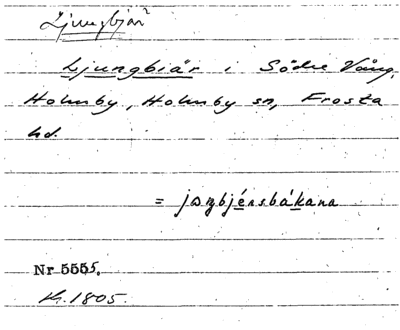 Ljungbjär
Ljungbiär i Södre Vång,
Holmby, Holmby sn, Frosta
hd.
= jɷŋbjérsbákana
Nr 5555.
Kr. 1805.